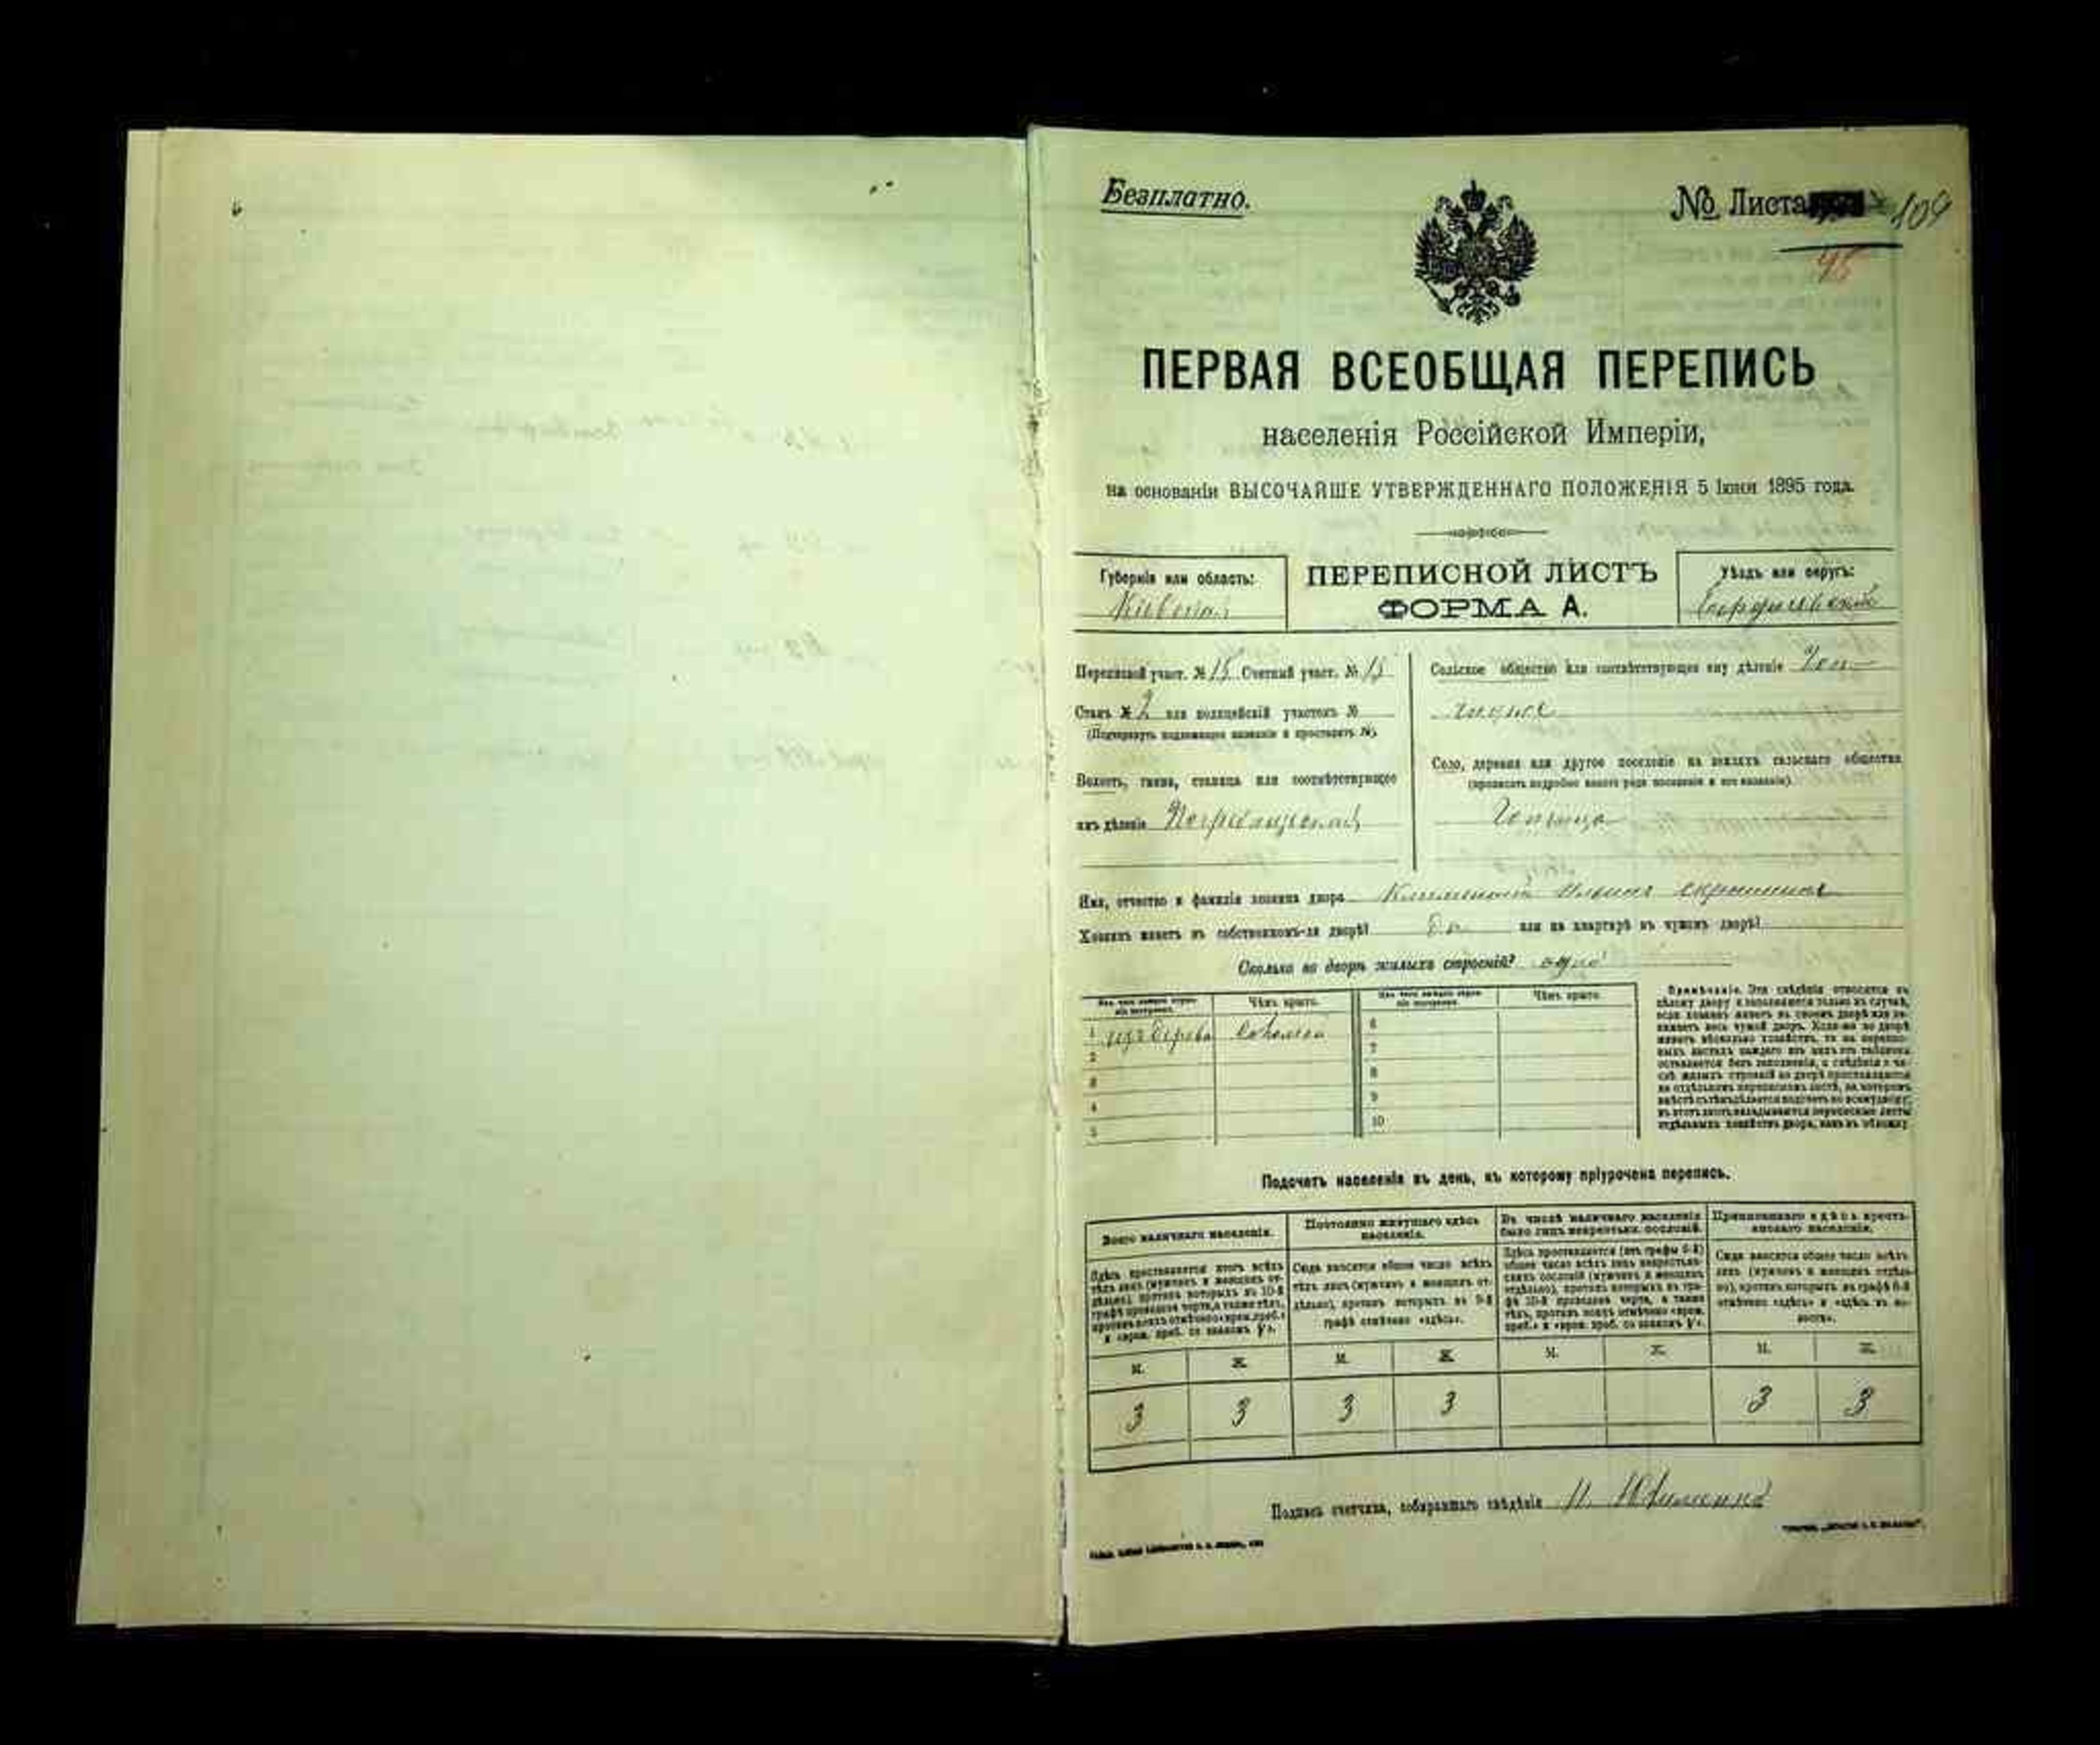 Безплатно.
№ Листа 109
95
ПЕРВАЯ ВСЕОБЩАЯ ПЕРЕПИСЬ
населенія Россійской Имперіи,
на основаніи ВЫСОЧАЙШЕ УТВЕРЖДЕННАГО ПОЛОЖЕНІЯ 5 Іюня 1895 года.
Губернія или область:
ПЕРЕПИСНОЙ ЛИСТЪ
Уѣздъ или округъ:
Кіевская
ФОРМА А.
Бердичевскій
Переписной участ. № 15 Счетный участ. № 15
Сельское общество или соотвѣтствующее ему дѣленіе
Станъ № 2 или полицейскій участокъ №
(Подчеркнуть надлежащее названіе и проставить №).
Село, деревня или другое поселеніе на земляхъ сельскаго общества
(прописать подробно какого рода поселеніе и его названіе).
Волость, гмина, станица или соотвѣтствующее
имъ дѣленіе Погребищская
Имя, отчество и фамилія хозяина двора
Хозяинъ живетъ въ собственномъ-ли дворѣ? да или на квартирѣ въ чужомъ дворѣ?
Сколько во дворѣ жилыхъ строеній? одно
Изъ чего каждое строеніе построено. Чѣмъ крыто. Изъ чего каждое строеніе построено. Чѣмъ крыто.
1 изъ дерева Соломой 6
2 7
3 8
4 9
5 10
Примѣчаніе. Эти свѣдѣнія относятся къ
цѣлому двору и заполняются только въ случаѣ,
если хозяинъ живетъ въ своемъ дворѣ или за-
нимаетъ весь чужой дворъ. Коли-же во дворѣ
живетъ нѣсколько хозяйствъ, то на перепис-
ныхъ листахъ каждаго изъ нихъ эта табличка
оставляется безъ заполненія, а свѣдѣнія о чи-
слѣ жилыхъ строеній во дворѣ проставляются
на отдѣльномъ переписномъ листѣ, на которомъ
вмѣстѣ съ тѣмъ дѣлается подсчетъ по всему двору;
въ этотъ листъ вкладываются переписные листы
отдѣльныхъ хозяйствъ двора, какъ въ обложку.
Подсчетъ населенія въ день, къ которому пріурочена перепись.
Всего наличнаго населенія.
Здѣсь проставляется итогъ всѣхъ
тѣхъ лицъ (мужчинъ и женщинъ от-
дѣльно), противъ которыхъ въ 10-й
графѣ проведена черта, а также тѣхъ,
противъ коихъ отмѣчено «врем. преб.»
Постоянно живущаго здѣсь
населенія.
Сюда вносится общее число всѣхъ
тѣхъ лицъ (мужчинъ и женщинъ от-
дѣльно), противъ которыхъ въ 9-й
графѣ отмѣчено «здѣсь».
Въ числѣ наличнаго населенія
было лицъ некрестьян. сословій.
Здѣсь проставляется (изъ графы 6-й)
общее число всѣхъ лицъ некрестьян-
скихъ сословій (мужчинъ и женщинъ
отдѣльно), противъ которыхъ въ гра-
фѣ 10-й проведена черта, а также
тѣхъ, противъ коихъ отмѣчено «врем.
Приписаннаго здѣсь кресть-
янскаго населенія.
Сюда вносится общее число всѣхъ
лицъ (мужчинъ и женщинъ отдѣль-
но), противъ которыхъ въ графѣ 8-й
отмѣчено «здѣсь» и «здѣсь въ во-
лости».
М. Ж. М. Ж. М. Ж. М. Ж.
3 3 3 3 3 3
Подпись счетчика, собиравшаго свѣдѣнія